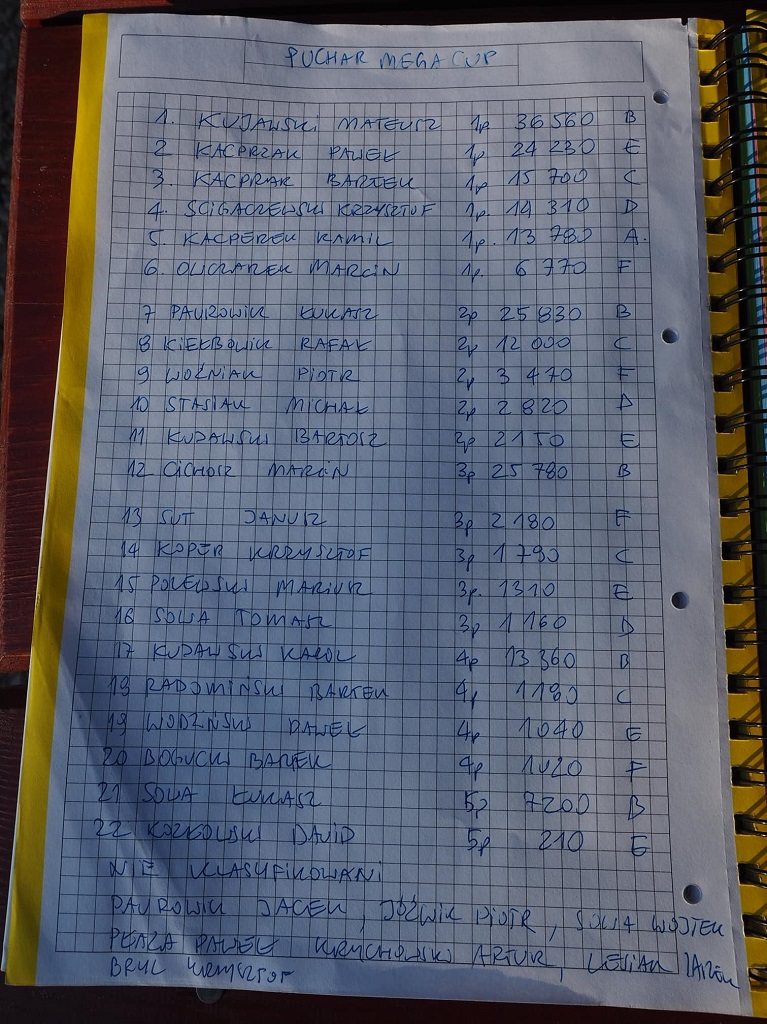 PUCHAR MEGA CUP
1. KUJAWSKI MATEUSZ 1p 36 560 B
2 KACPRZAK PAWEŁ 1p 24 230 E
3. KACPRAK BARTEK 1p 15 700 C
4. ŚCIGACZEWSKI KRZYSZTOF 1p. 14 310 D
5. KACPEREK KAMIL 1p. 13 780 A.
6. OLICZAREK MARCIN 1p. 6 770 F
7 PAUROWIK ŁUKASZ 2p 25 830 B
8 KIEŁBOWIK RAFAŁ 2p 12 000 C
9 WOŹNIAK PIOTR 2p 3 470 F
10 STASIAK MICHAŁ 2p 2 820 D
11 KUJAWSKI BARTOSZ 2p 2150 E
12 CICHOSZ MARCIN 3p 25 780 B
13 SUT JANUSZ 3p 2 180 F
14 KOPER KRZYSZTOF 3p 1 790 C
15 POLEWSKI MARIUSZ 3p. 1310 E
16 SOWA TOMASZ 3p 1 160 D
17 KUJAWSKI KAROL 4p 13 360 B
19 RADOMIŃSKI BARTEK 4p 1190 C
19 WODZIŃSKI PAWEŁ 4p 1040 E
20 BOGUCKI BARTEK 4p 1020 F
21 SOWA ŁUKASZ 5p 7200 B
22 KOZŁOWSKI DAVID 5p 210 E
NIE KLASYFIKOWANI
PAUROWIK JACEK, JÓŹWIK PIOTR, SOWA WOJTEK
PŁAZA PAWEŁ KRYCHOWSKI ARTUR, LESIAK
BRYL KRZYSZTOF